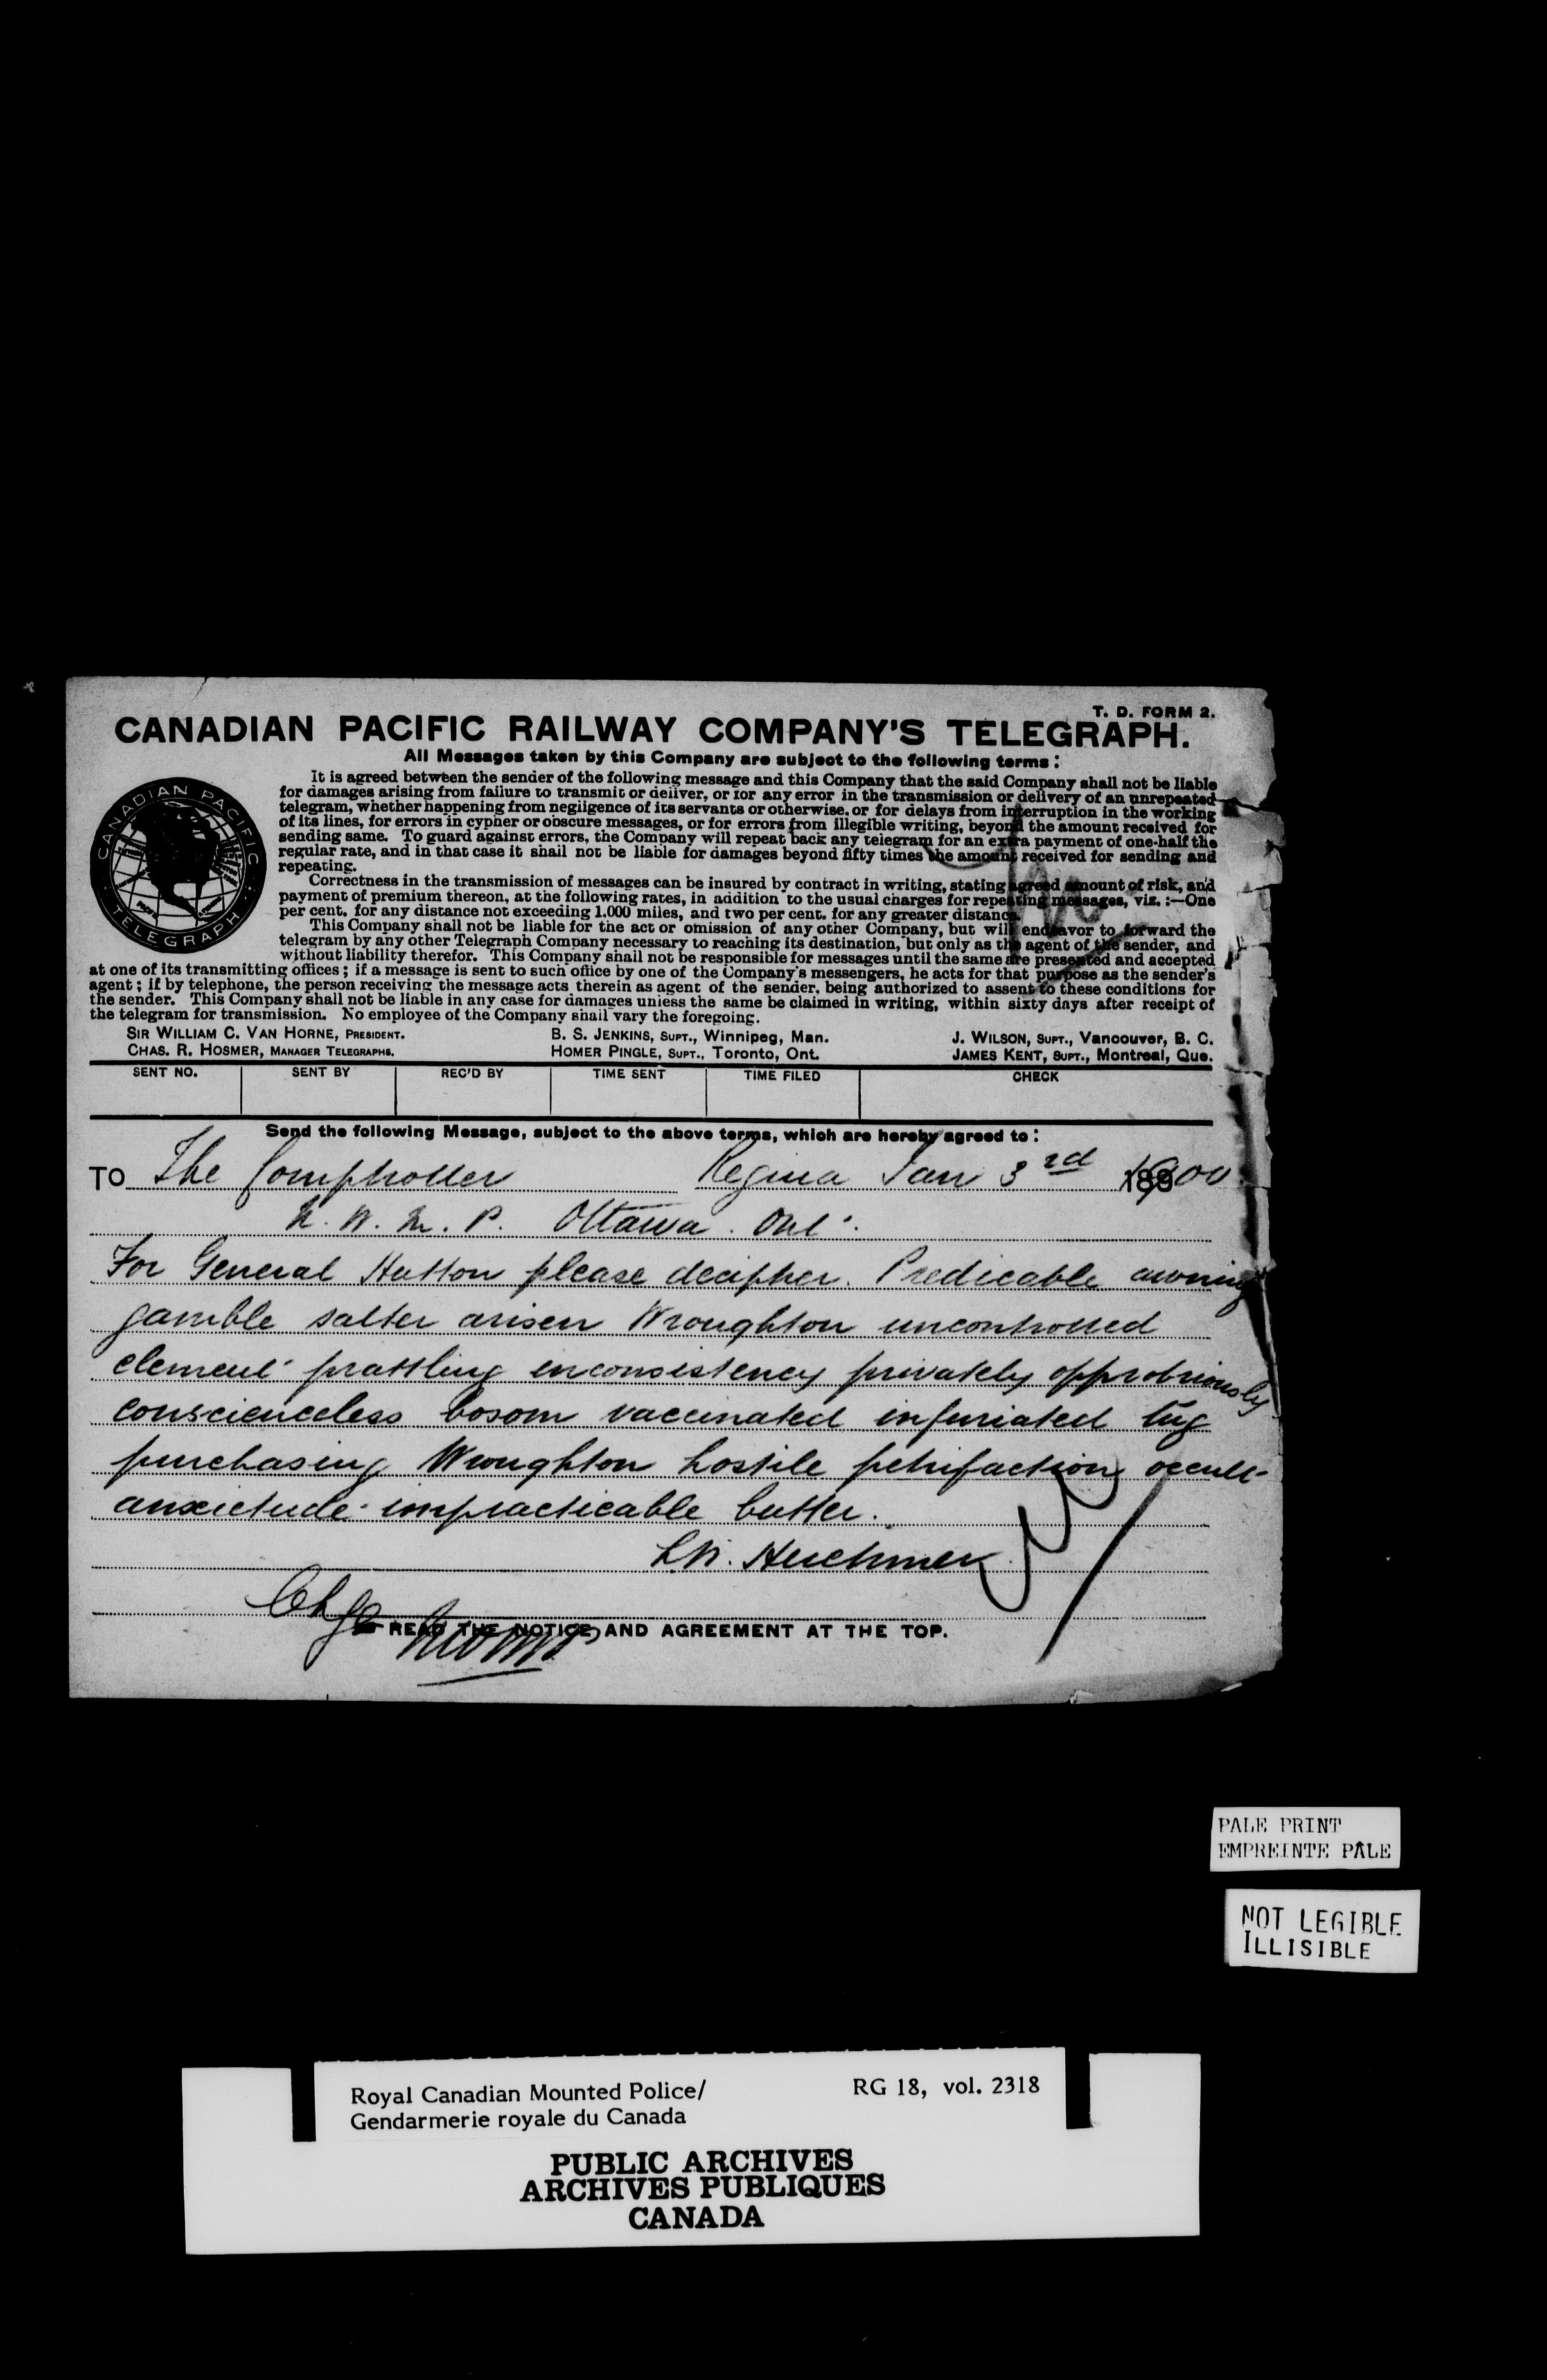 T. D. FORM 2.
CANADIAN PACIFIC RAILWAY COMPANY'S TELEGRAPH.
All Messages taken by this Company are subject to the following terms:
It is agreed between the sender of the following message and this Company that the said Company shall not be liable
for damages arising from failure to transmit or deliver, or for any error in the transmission or delivery of an unrepeated
telegram, whether happening from negligence of its servants or otherwise, or for delays from interruption in the working
of its lines, for errors in cypher or obscure messages, or for errors from illegible writing, beyond the amount received for
sending same. To guard against errors, the Company will repeat back any telegram for an extra payment of one-half the
regular rate, and in that case it shall not be liable for damages beyond fifty times the amount received for sending and
repeating.
Correctness in the transmission of messages can be insured by contract in writing, stating agreed amount of risk, and
payment of premium thereon, at the following rates, in addition to the usual charges for repeating messages, viz.:—One
per cent. for any distance not exceeding 1,000 miles, and two per cent. for any greater distance.
This Company shall not be liable for the act or omission of any other Company, but will endeavor to forward the
telegram by any other Telegraph Company necessary to reaching its destination, but only as the agent of the sender, and
without liability therefor. This Company shall not be responsible for messages until the same are presented and accepted
at one of its transmitting offices; if a message is sent to such office by one of the Company's messengers, he acts for that purpose as the sender's
agent; if by telephone, the person receiving the message acts therein as agent of the sender, being authorized to assent to these conditions for
the sender. This Company shall not be liable in any case for damages unless the same be claimed in writing, within sixty days after receipt of
the telegram for transmission. No employee of the Company shall vary the foregoing.
CANADIAN PACIFIC TELEGRAPH
SIR WILLIAM C. VAN HORNE, PRESIDENT. B. S. JENKINS, SUPT., Winnipeg, Man. J. WILSON, SUPT., Vancouver, B. C.
CHAS. R. HOSMER, MANAGER TELEGRAPHS. HOMER PINGLE, SUPT., Toronto, Ont. JAMES KENT, SUPT., Montreal, Que.
SENT NO. SENT BY REC'D BY TIME SENT TIME FILED CHECK
Send the following Message, subject to the above terms, which are hereby agreed to:
TO The Comptroller Regina Jan 3rd 1900
N. W. M. P. Ottawa. Ont.
For General Hutton please decipher. Predicable awning
gamble salter arisen Wroughton uncontrolled
element prattling inconsistency privately opprobriously
conscienceless bosom vaccinated infuriated tug
purchasing Wroughton hostile petrifaction occult
anxietude impracticable butter.
L.W. Herchmer
Chge
READ THE NOTICE AND AGREEMENT AT THE TOP.
PALE PRINT
EMPREINTE PÂLE
NOT LEGIBLE
ILLISIBLE
Royal Canadian Mounted Police/ RG 18, vol. 2318
Gendarmerie royale du Canada
PUBLIC ARCHIVES
ARCHIVES PUBLIQUES
CANADA